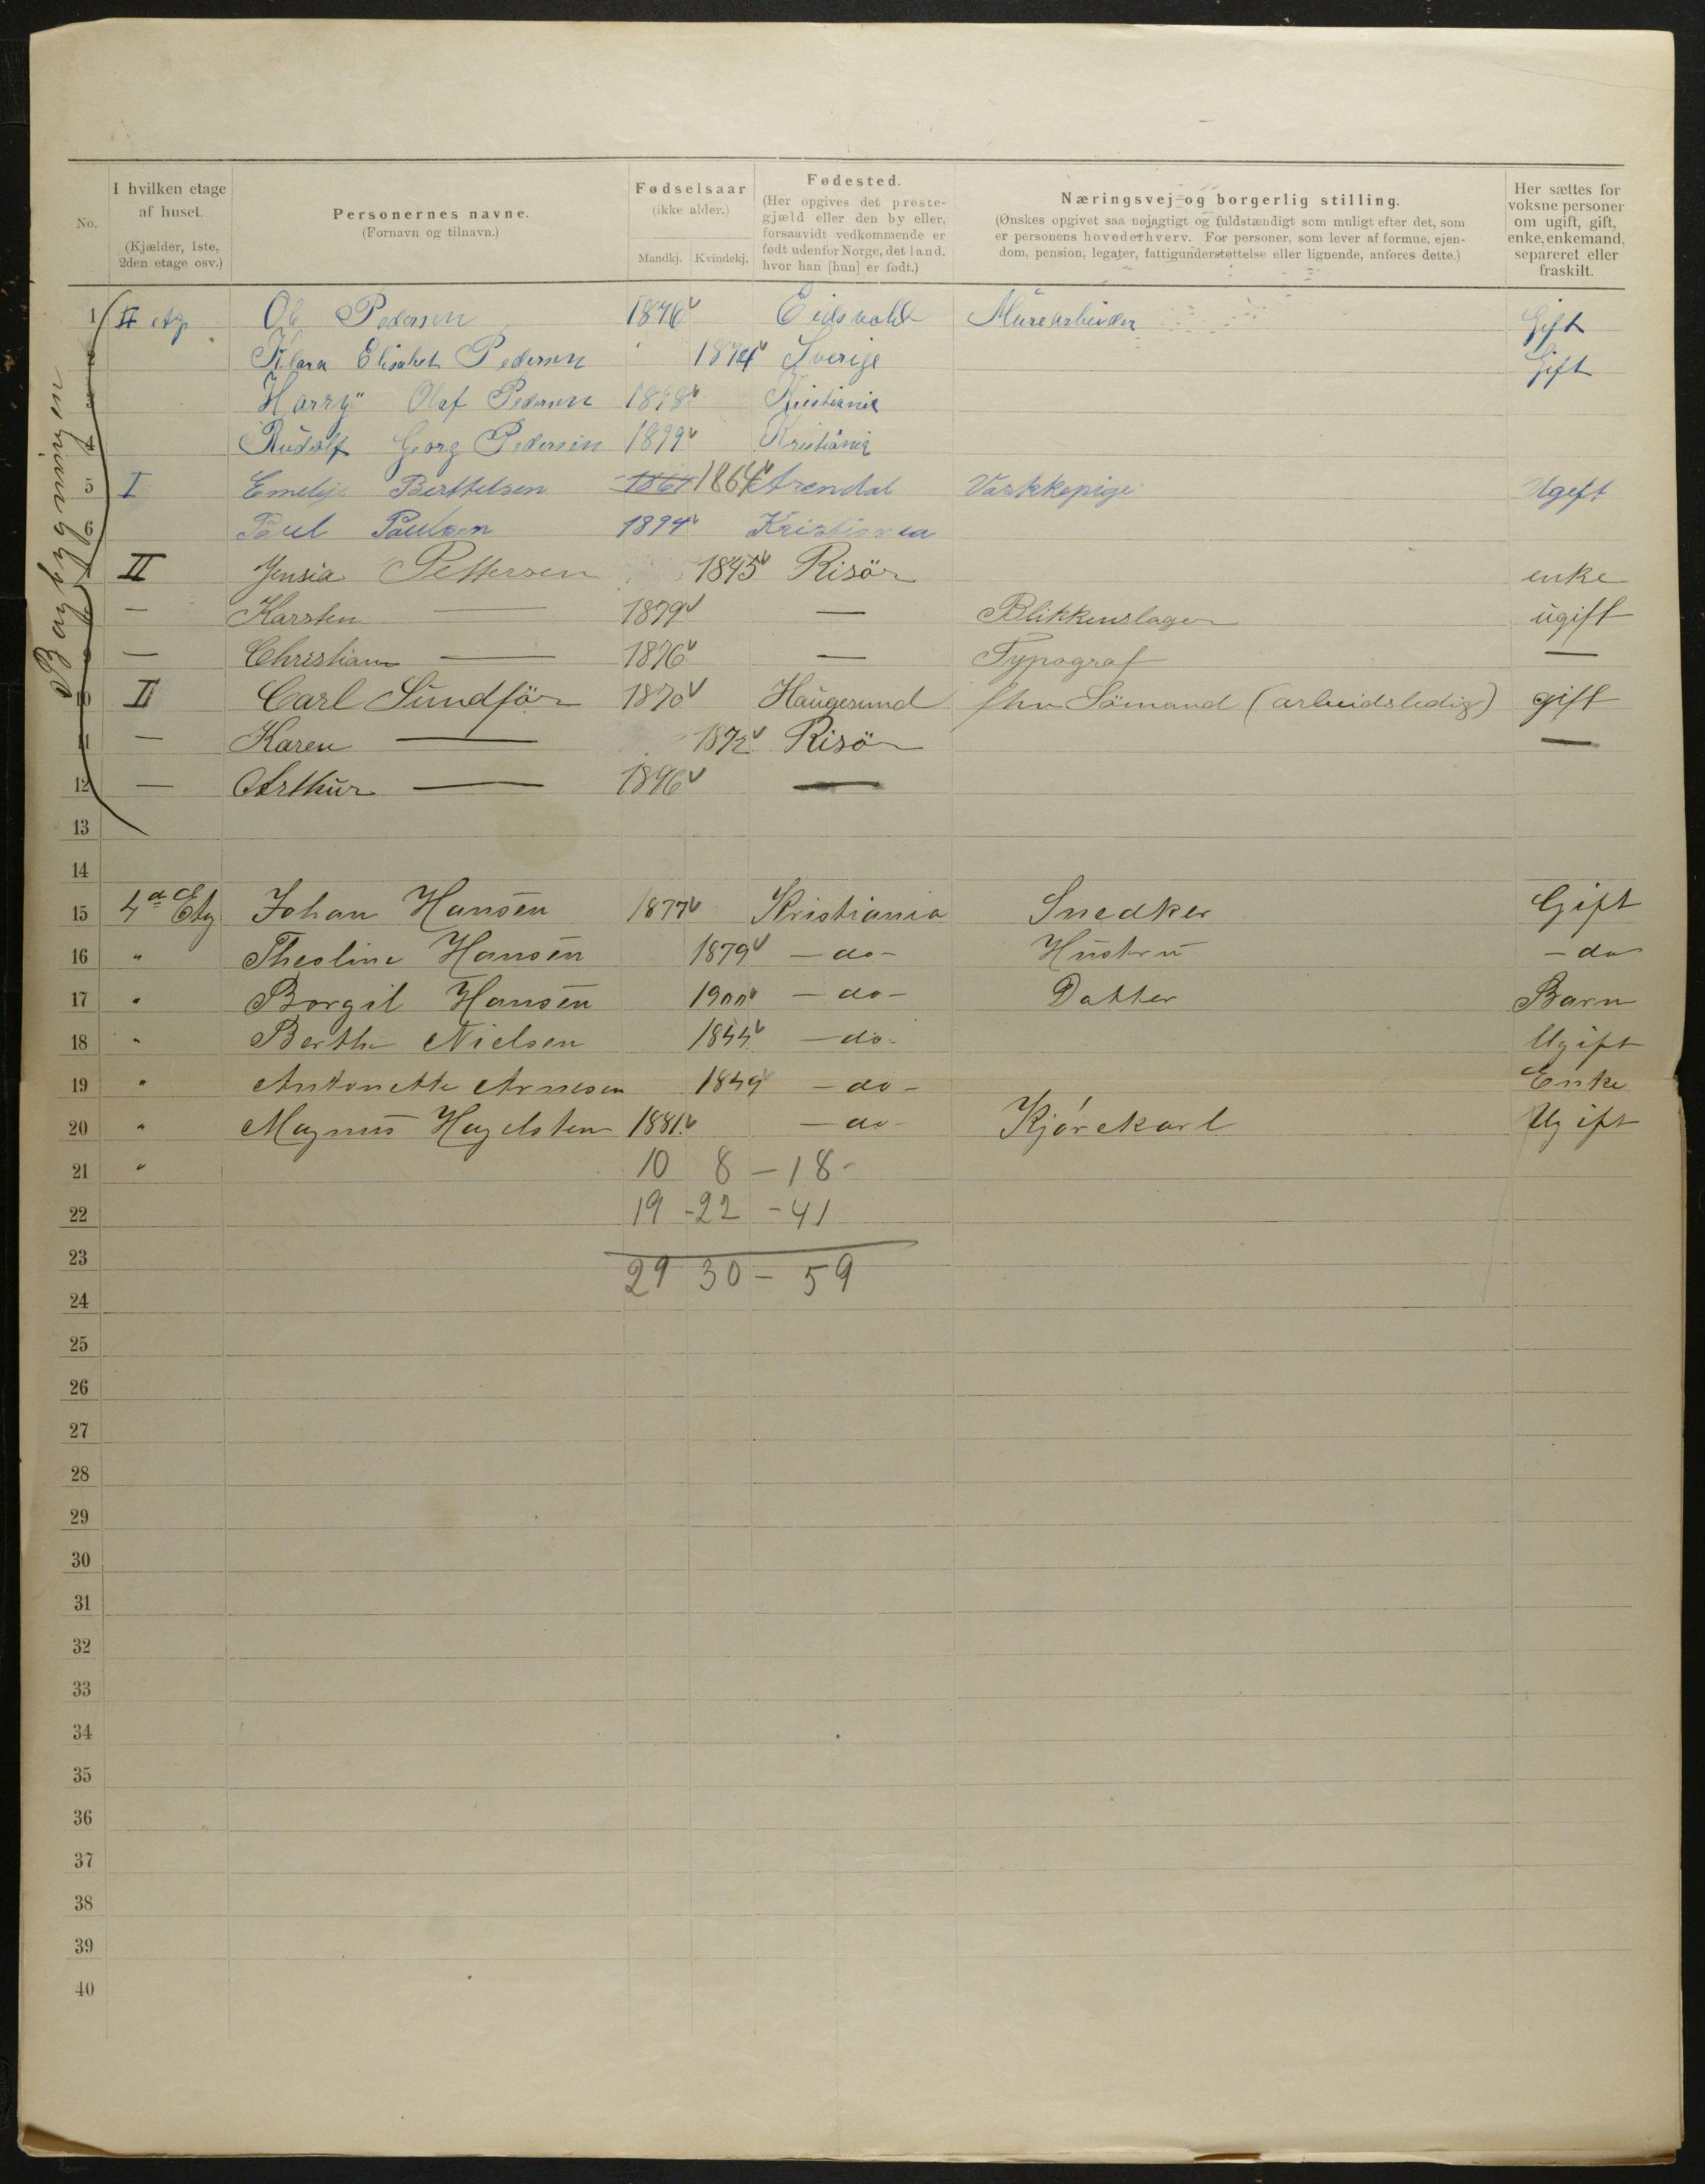 No. | I hvilken etage af huset. (Kjælder, 1ste, 2den etage osv.) | Personernes navne. (Fornavn og tilnavn.) | Fødselsaar (ikke alder.) Mandkj. Kvindekj. | Fødested. (Her opgives det prestegjæld eller den by eller, forsaavidt vedkommende er født udenfor Norge, det land, hvor han [hun] er født.) | Næringsvej og borgerlig stilling. (Ønskes opgivet saa nøjagtigt og fuldstændigt som muligt efter det, som er personens hovederhverv. For personer, som lever af formue, ejendom, pension, legater, fattigunderstøttelse eller lignende, anføres dette.) | Her sættes for voksne personer om ugift, gift, enke, enkemand, separeret eller fraskilt.
1 II etg Ole Pedersen 1876 Eidsvold Murearbeider Gift
2 Klara Elisabet Pedersen 1874 Sverige Gift
3 Harry Olaf Pedersen 1898 Kristiania
4 Rudolf Georg Pedersen 1899 Kristiania
5 I Emelije Berthelsen 1864 1864 Arendal Vaskkepige Ugeft
6 Paul Paulsen 1894 Kristiania
7 II Jensia Pettersen 1845 Risör enke
8 — Karsten — 1879 — Blikkenslager ugift
9 — Christian — 1876 — Typograf —
10 II Carl Sundför 1870 Haugesund fhv Sömand (arbeidsledig) gift
11 — Karen — 1872 Risör —
12 — Arthur — 1896 —
13
14
15 4de Etg Johan Hansen 1877 Kristiania Snedker Gift
16 " Theoline Hansen 1879 — do — Hustru — do
17 " Borgil Hansen 1900 — do — Datter Barn
18 " Berthe Nielsen 1844 — do — Ugift
19 " Antonette Arnesen 1849 — do — Enke
20 " Magnus Hagelsten 1881 — do — Kjørekarl Ugift
21 " 10 8 — 18
22 19 - 22 - 41
23
24 29 30 — 59
25
26
27
28
29
30
31
32
33
34
35
36
37
38
39
40